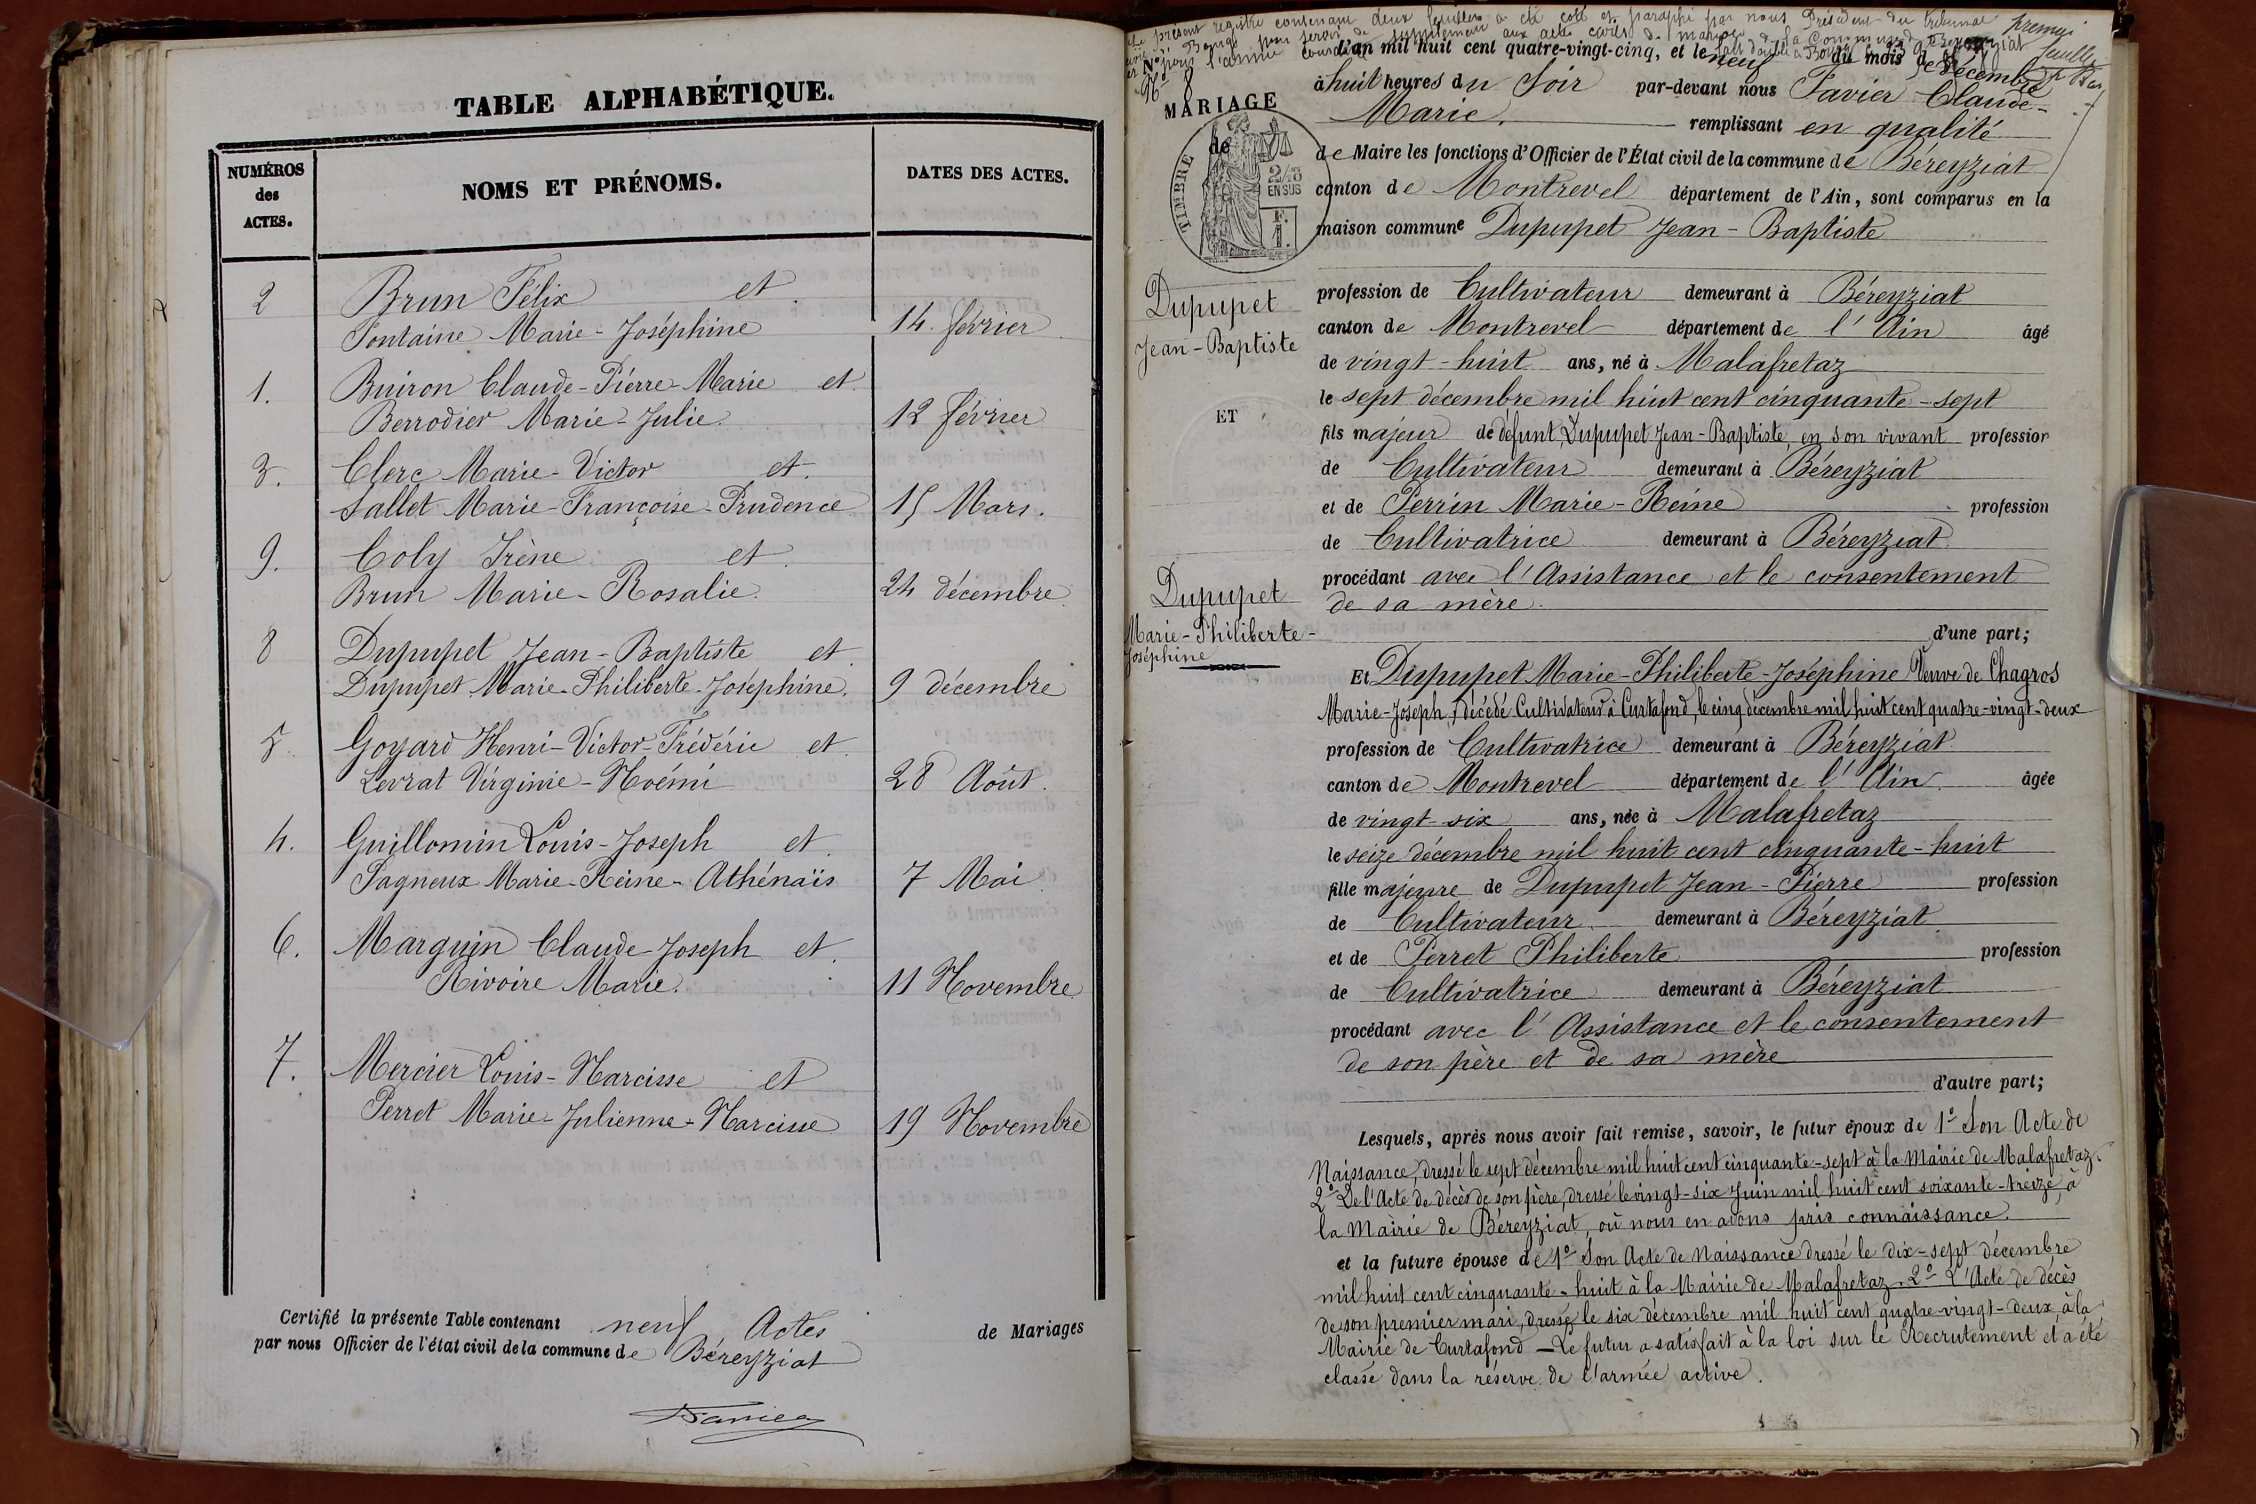 TABLE ALPHABÉTIQUE.
NUMÉROS des ACTES.
NOMS ET PRÉNOMS.
DATES DES ACTES.
2 Brun Félix et
Fontaine Marie-Joséphine 14 février
1. Buiron Claude-Pierre-Marie et
Berrodier Marie-Julie. 12 février
3. Clerc Marie-Victor et.
Sallet Marie-Françoise-Prudence 15 Mars.
9. Coly Irène et.
Brun Marie-Rosalie. 24 décembre
8 Dupupet Jean-Baptiste et
Dupupet Marie-Philiberte-Joséphine. 9 décembre
5. Goyard Henri-Victor-Frédéric et
Levrat Virginie-Noémi 28 Août.
4. Guillomin Louis-Joseph et.
Pagneux Marie-Reine-Athénaïs 7 Mai
6. Marguin Claude-Joseph et.
Rivoire Marie. 11 Novembre
7. Mercier Louis-Narcisse et
Perret Marie-Julienne-Narcisse 19 Novembre
Certifié la présente Table contenant neuf Actes de Mariages
par nous Officier de l'état civil de la commune de Béreyziat
Le présent registre contenant deux feuillets a été coté et paraphé par nous Président du tribunal
Bourg pour servir de supplément aux actes civils de mariage de la Commune de Béreyziat
pour l'année courante
premier
feuillet
No 8
MARIAGE
de
TIMBRE
2/10
EN SUS
Dupupet
Jean-Baptiste
ET
Dupupet
Marie-Philiberte-
Joséphine
L'an mil huit cent quatre-vingt-cinq, et le neuf du mois de décembre
à huit heures du Soir par-devant nous Favier Claude-
Marie. remplissant en qualité
de Maire les fonctions d'Officier de l'État civil de la commune de Béreyziat
canton de Montrevel département de l'Ain, sont comparus en la
maison commune Dupupet Jean-Baptiste
profession de Cultivateur demeurant à Béreyziat
canton de Montrevel département de l'Ain âgé
de vingt-huit ans, né à Malafretaz
le sept décembre mil huit cent cinquante-sept
fils majeur de défunt Dupupet Jean-Baptiste, en son vivant profession
de Cultivateur demeurant à Béreyziat
et de Perrin Marie-Reine profession
de Cultivatrice demeurant à Béreyziat
procédant avec l'Assistance et le consentement
de sa mère.
d'une part;
Et Dupupet Marie-Philiberte-Joséphine Veuve de Chagros
Marie-Joseph, décédé Cultivateur à Curtafond, le cinq décembre mil huit cent quatre-vingt-deux
profession de Cultivatrice demeurant à Béreyziat
canton de Montrevel département de l'Ain âgée
de vingt-six ans, née à Malafretaz
le seize décembre mil huit cent cinquante-huit
fille majeure de Dupupet Jean-Pierre profession
de Cultivateur demeurant à Béreyziat
et de Perret Philiberte profession
de Cultivatrice demeurant à Béreyziat
procédant avec l'Assistance et le consentement
de son père et de sa mère
d'autre part;
Lesquels, après nous avoir fait remise, savoir, le futur époux de 1o Son Acte de
Naissance, dressé le sept décembre mil huit cent cinquante-sept à la Mairie de Malafretaz.
2o De l'Acte de décès de son père, dressé le vingt-six Juin mil huit cent soixante-treize, à
la Mairie de Béreyziat, où nous en avons pris connaissance.
et la future épouse de 1o Son Acte de Naissance dressé le dix-sept décembre
mil huit cent cinquante-huit à la Mairie de Malafretaz. 2o L'Acte de décès
de son premier mari, dressé le six décembre mil huit cent quatre-vingt-deux, à la
Mairie de Curtafond — Le futur a satisfait à la loi sur le Recrutement et a été
classé dans la réserve de l'armée active.